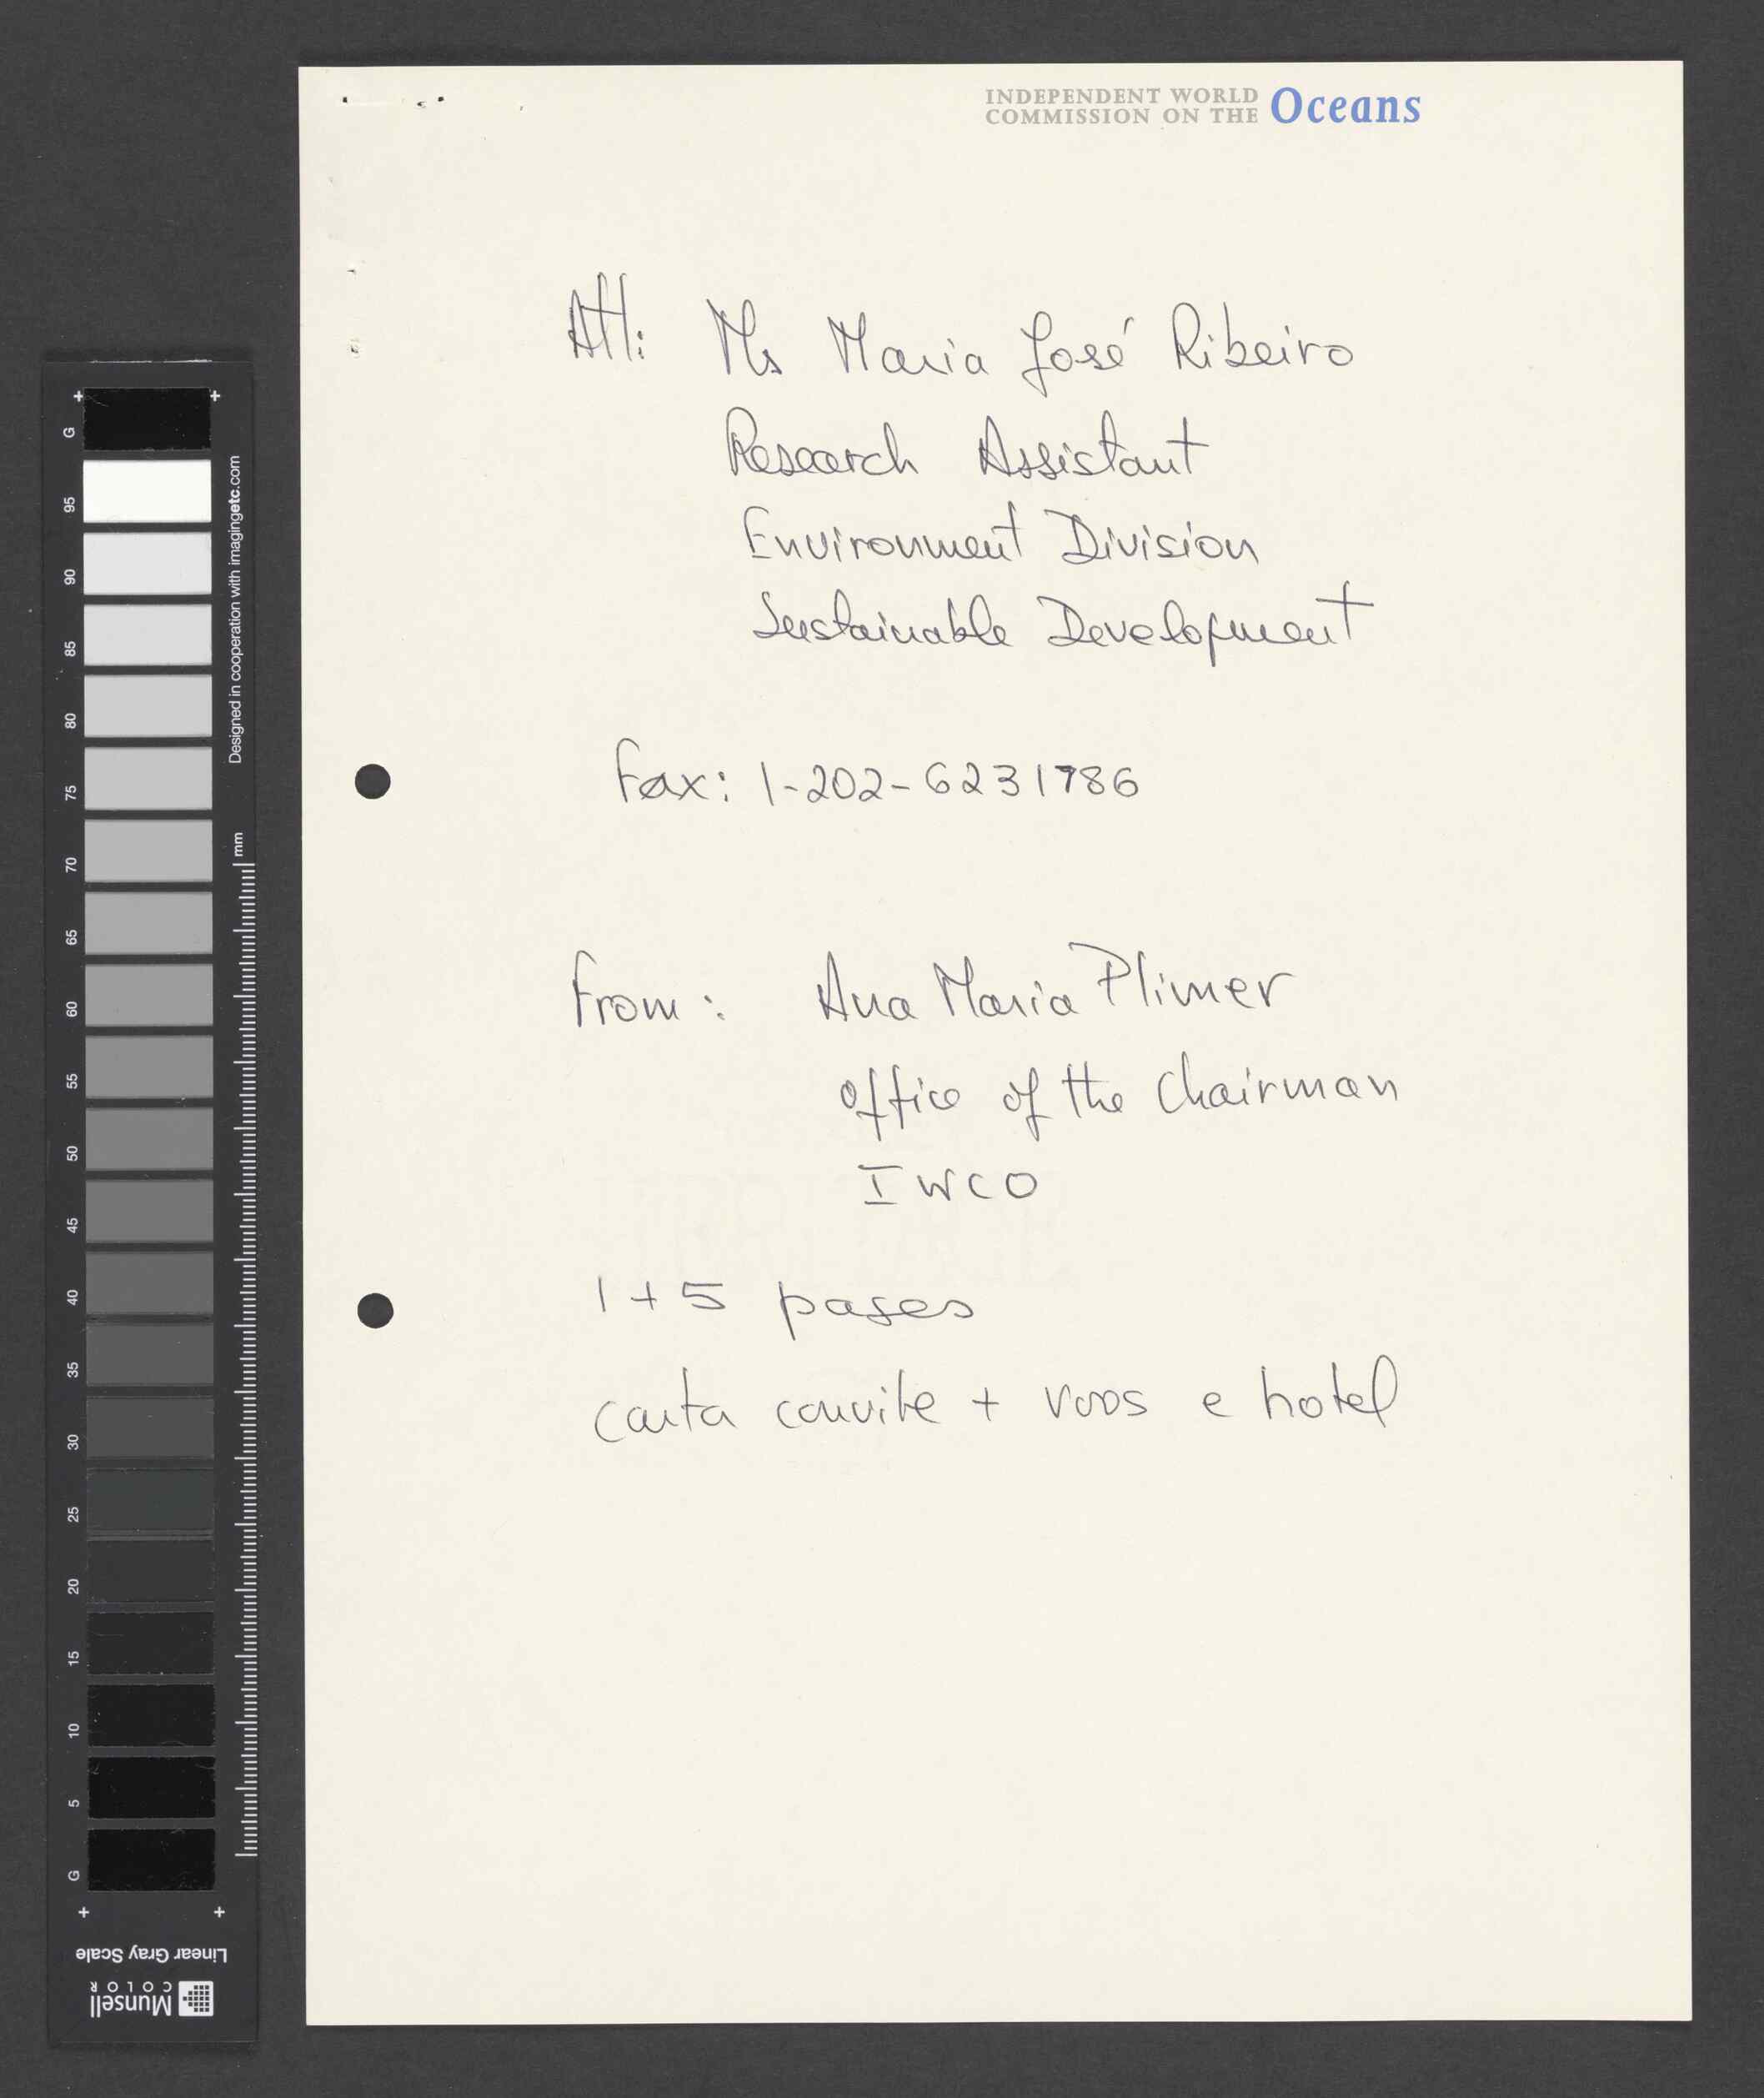 INDEPENDENT WORLD
COMMISSION ON THE Oceans
Att: Ms Maria José Ribeiro
Research Assistant
Environment Division
Sustainable Development
Fax: 1-202-6231786
From: Ana Maria Plimer
Office of the Chairman
IWCO
1+5 pages
carta convite + voos e hotel
G 95 90 85 80 75 70 65 60 55 50 45 40 35 30 25 20 15 10 5 G
Designed in cooperation with imagingetc.com
mm
Linear Gray Scale
Munsell
COLOR